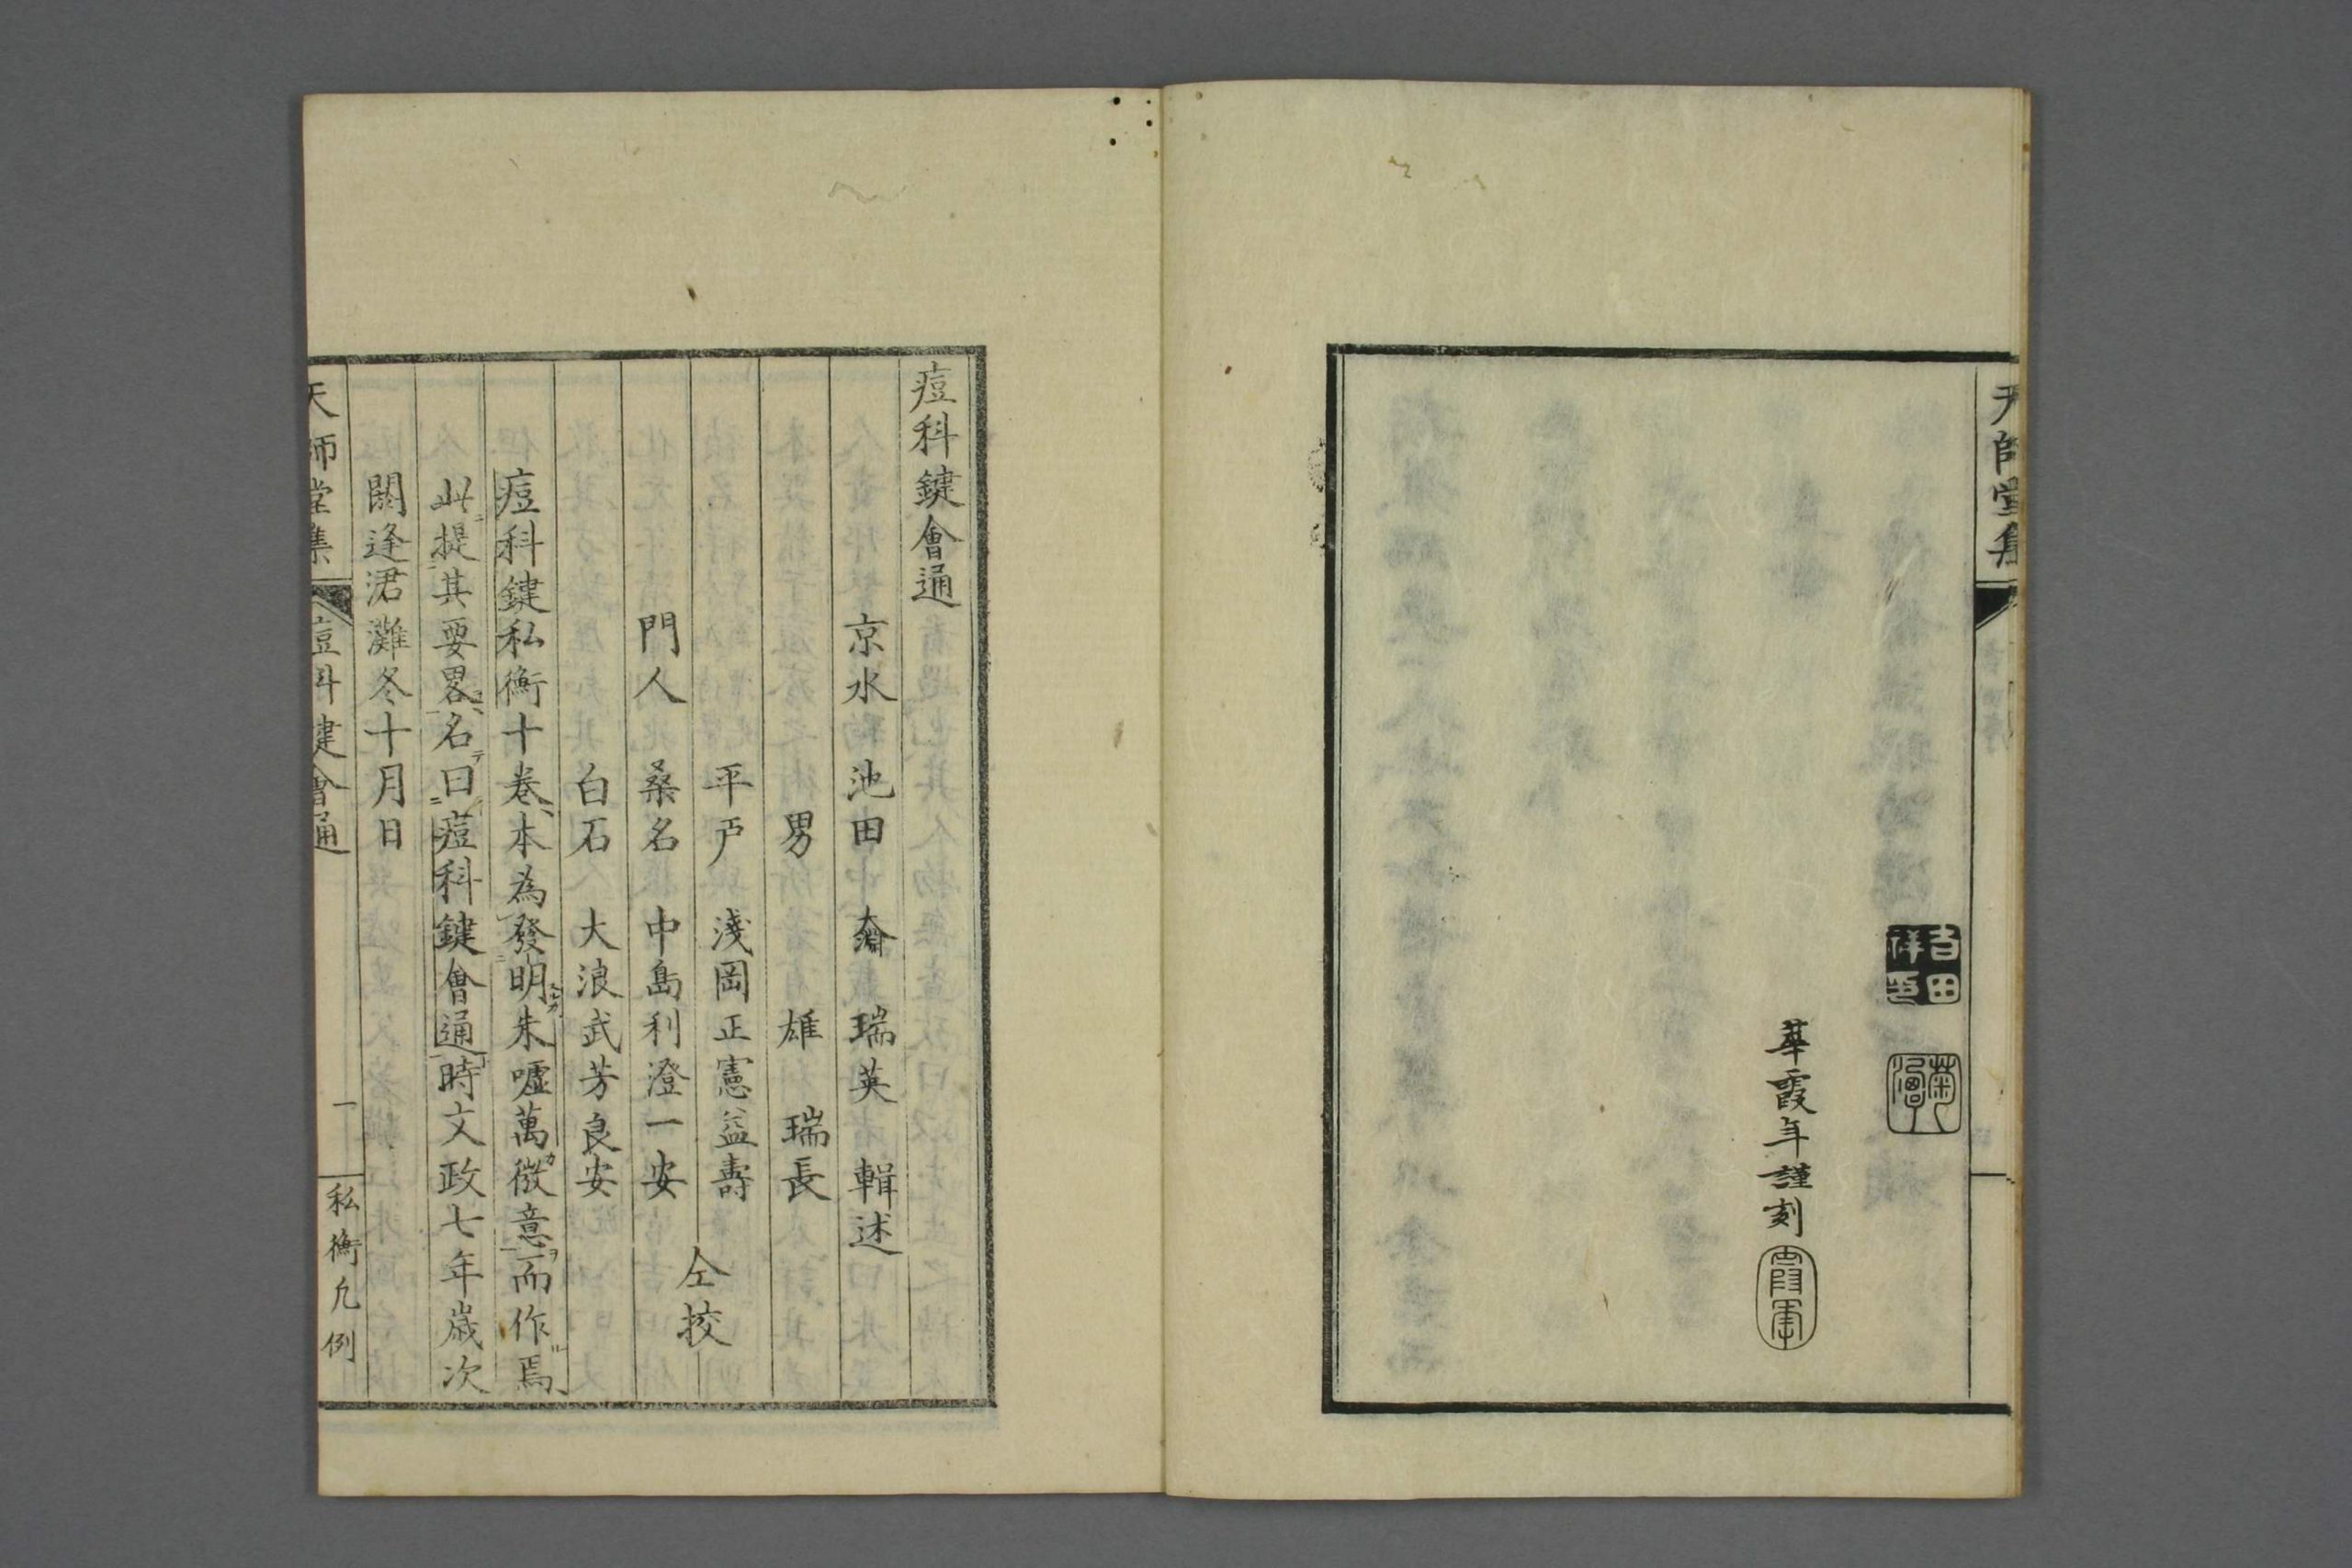 天師堂集
吉田祥印
華霞年謹刻
痘科鍵會通
京水 池田 奫 瑞英 輯述
男 雄 瑞長
平戸 淺岡正憲益壽
門人 桑名 中島利澄一安
白石 大浪武芳良安
仝挍
痘科鍵私衡十卷本為發明朱嘘萬微意而作焉
此提其要畧名曰痘科鍵會通時文政七年歲次
閼逢涒灘冬十月日
天師堂集 痘科鍵會通 一 私衡凡例